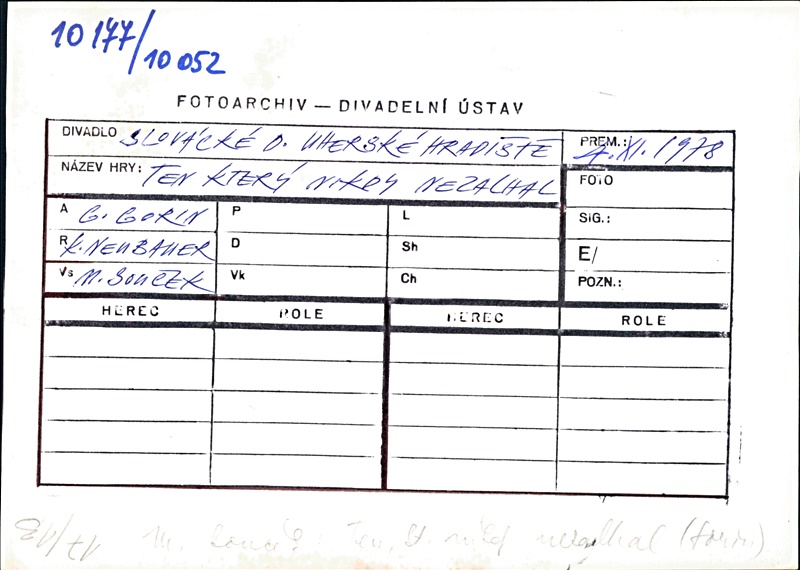 10 177/10 052
FOTOARCHIV — DIVADELNÍ ÚSTAV
DIVADLO SLOVÁCKÉ D. UHERSKÉ HRADIŠTĚ PREM.: 4. XI. 1978
NÁZEV HRY: TEN KTERÝ NIKDY NEZALHAL FOTO
A G. GORIN P L SIG.:
R K. NEUBAUER D Sh E/
Vs M. SOUČEK Vk Ch POZN.:
HEREC ROLE HEREC ROLE
M. nezalhal (Gorin)